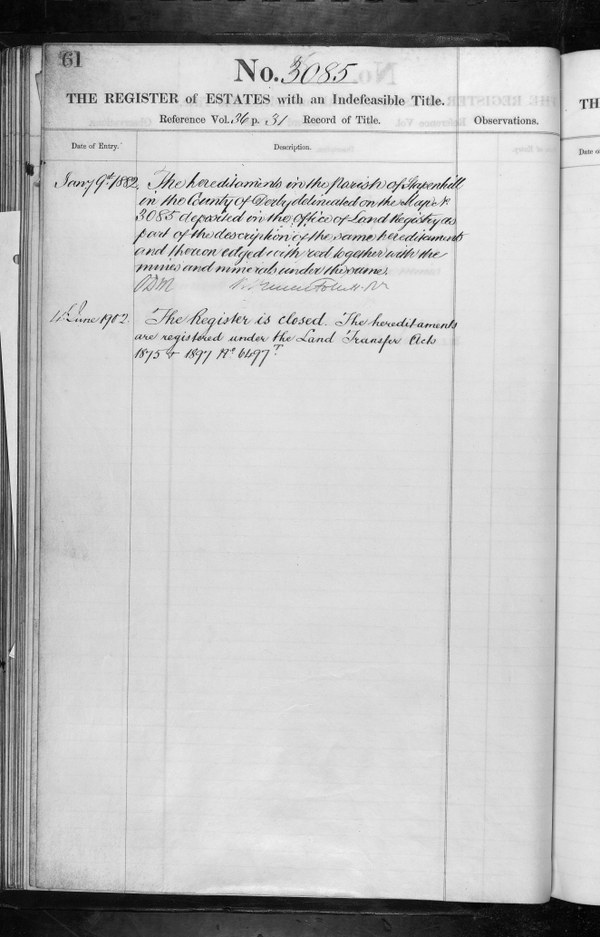 61
No. 3085
THE REGISTER of ESTATES with an Indefeasible Title.
Reference Vol. 36 p. 31 Record of Title.
Observations.
Date of Entry.
Description.
Jany 9th 1882
The hereditaments in the Parish of Stapenhill
in the County of Derby delineated on the Map No
3085 deposited in the Office of Land Registry as
part of the description of the same hereditaments
and thereon edged with red together with the
mines and minerals under the same.
June 1902.
The Register is closed. The hereditaments
are registered under the Land Transfer Acts
1875 & 1897 No 6497
TH
Date o